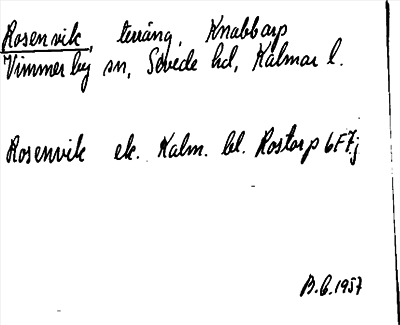 Rosenvik, terräng, Knabbarp
Vimmerby sn, Sevede hd, Kalmar l.
Rosenvik ek. Kalm. bl. Rostorp 6F7j
B.G. 1957